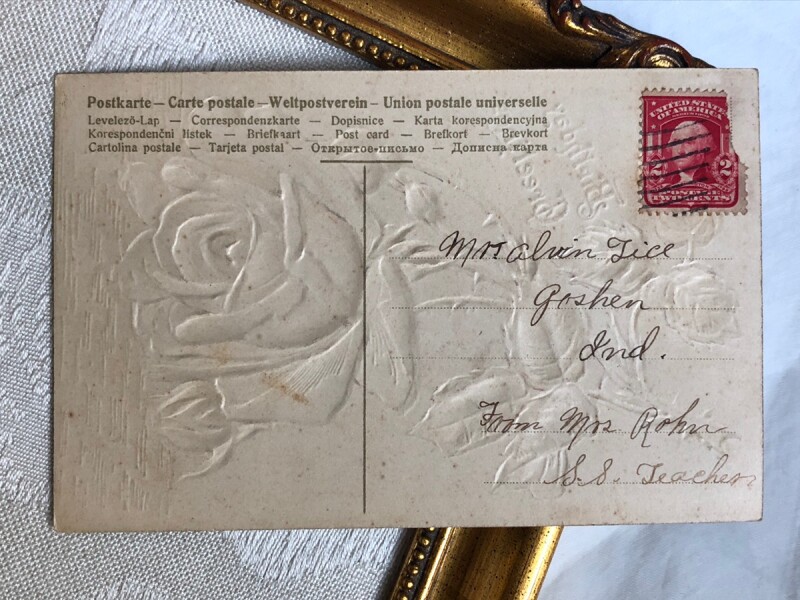 Postkarte — Carte postale — Weltpostverein — Union postale universelle
Levelező-Lap — Correspondenzkarte — Dopisnice — Karta korespondencyjna
Korespondenční lístek — Briefkaart — Post card — Brefkort — Brevkort
Cartolina postale — Tarjeta postal — Открытое-письмо — Дописна карта
UNITED STATES
OF AMERICA
2 2
POSTAGE
TWO CENTS
Mr Alvin Tice
Goshen
Ind.
From Mrs Rohn
S.S. Teacher